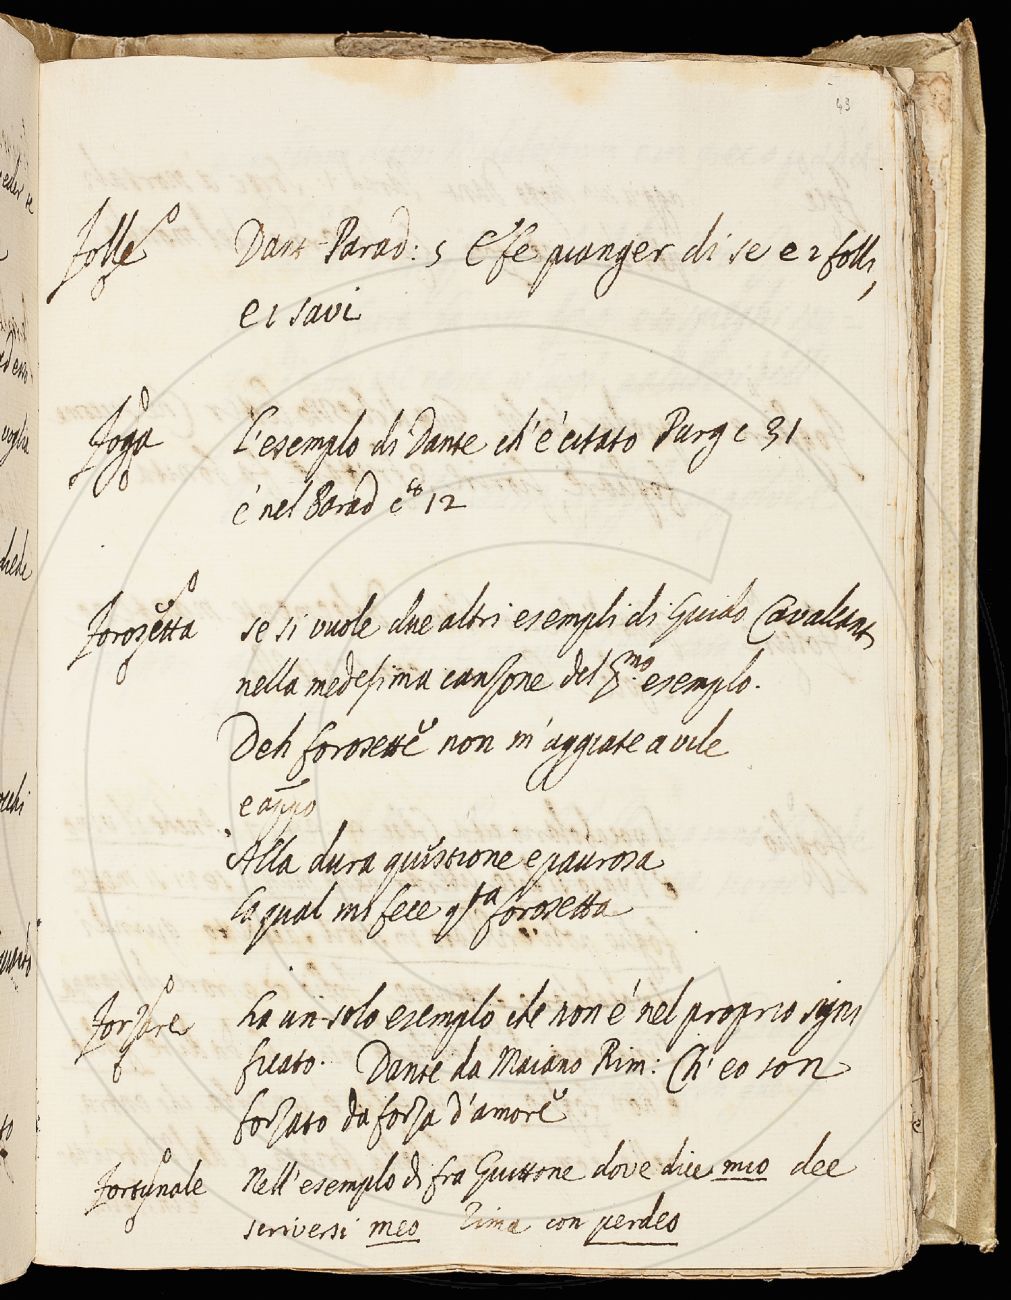 43
Folle Dant Parad: 5 E fe pianger di se e i folli,
e i savi
Foga L'esemplo di Dante ch'è citato Purg c 31
è nel Parad c.to 12
Forosetta se si vuole due altri esempli di Guido Cavalcant
nella medesima canzone del P.mo esemplo.
Deh forosette non m'aggiate a vile
e appo
Alla dura quistione e paurosa
La qual mi fece q.ta forosetta
Forzare ha un solo esemplo che non è nel proprio signi
ficato. Dante da Maiano Rim: Ch'eo son
forzato da forza d'amore
Fortunale Nell'esemplo di fra Guittone dove dice mio dee
scriversi meo Rima con perdeo